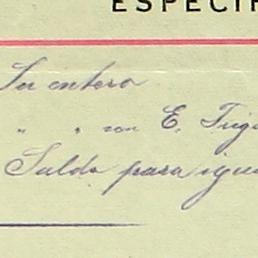 ESPECIF
Su entero
" " con E. Trigo
Saldo para igua